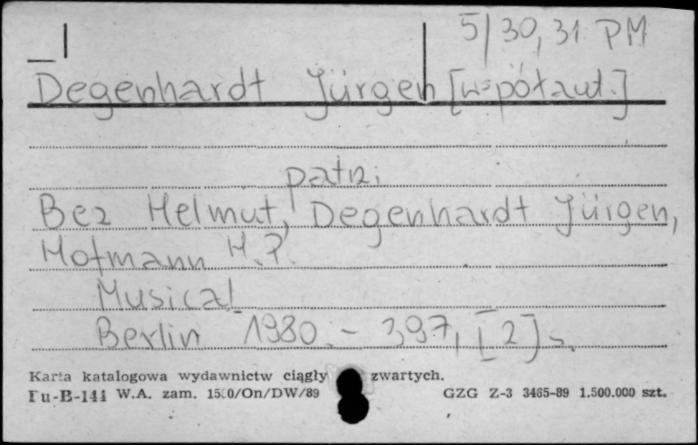 5/30,31 PM
Degenhardt Jürgen [współaut.]
patrz:
Bez Helmut, Degenhardt Jürgen,
Hofmann H.P.
Musical
Berlin 1980. - 397, [2] s.
Karta katalogowa wydawnictw ciągły zwartych.
Pu-B-144 W.A. zam. /On/DW/89 GZG Z-3 3465-89 1.500.000 szt.